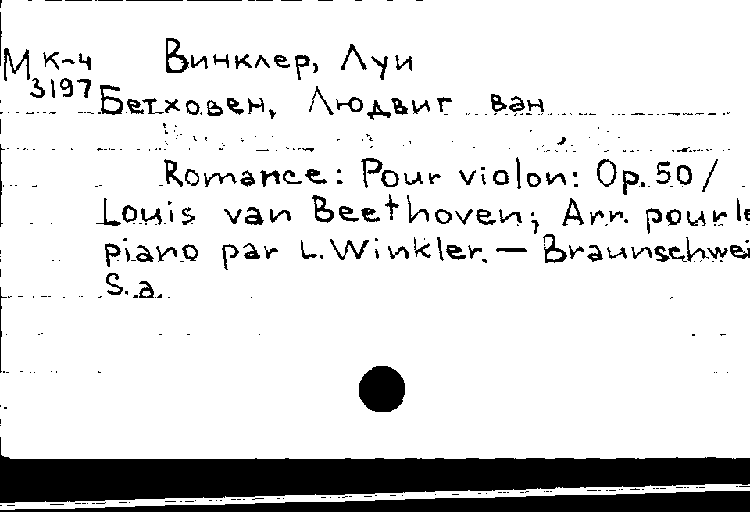 М К-4 Винклер, Луи
3197
Бетховен, Людвиг ван
Romance: Pour violon: Op. 50 /
Louis van Beethoven; Arr. pour le
piano par L. Winkler. — Braunschwei
S. a.